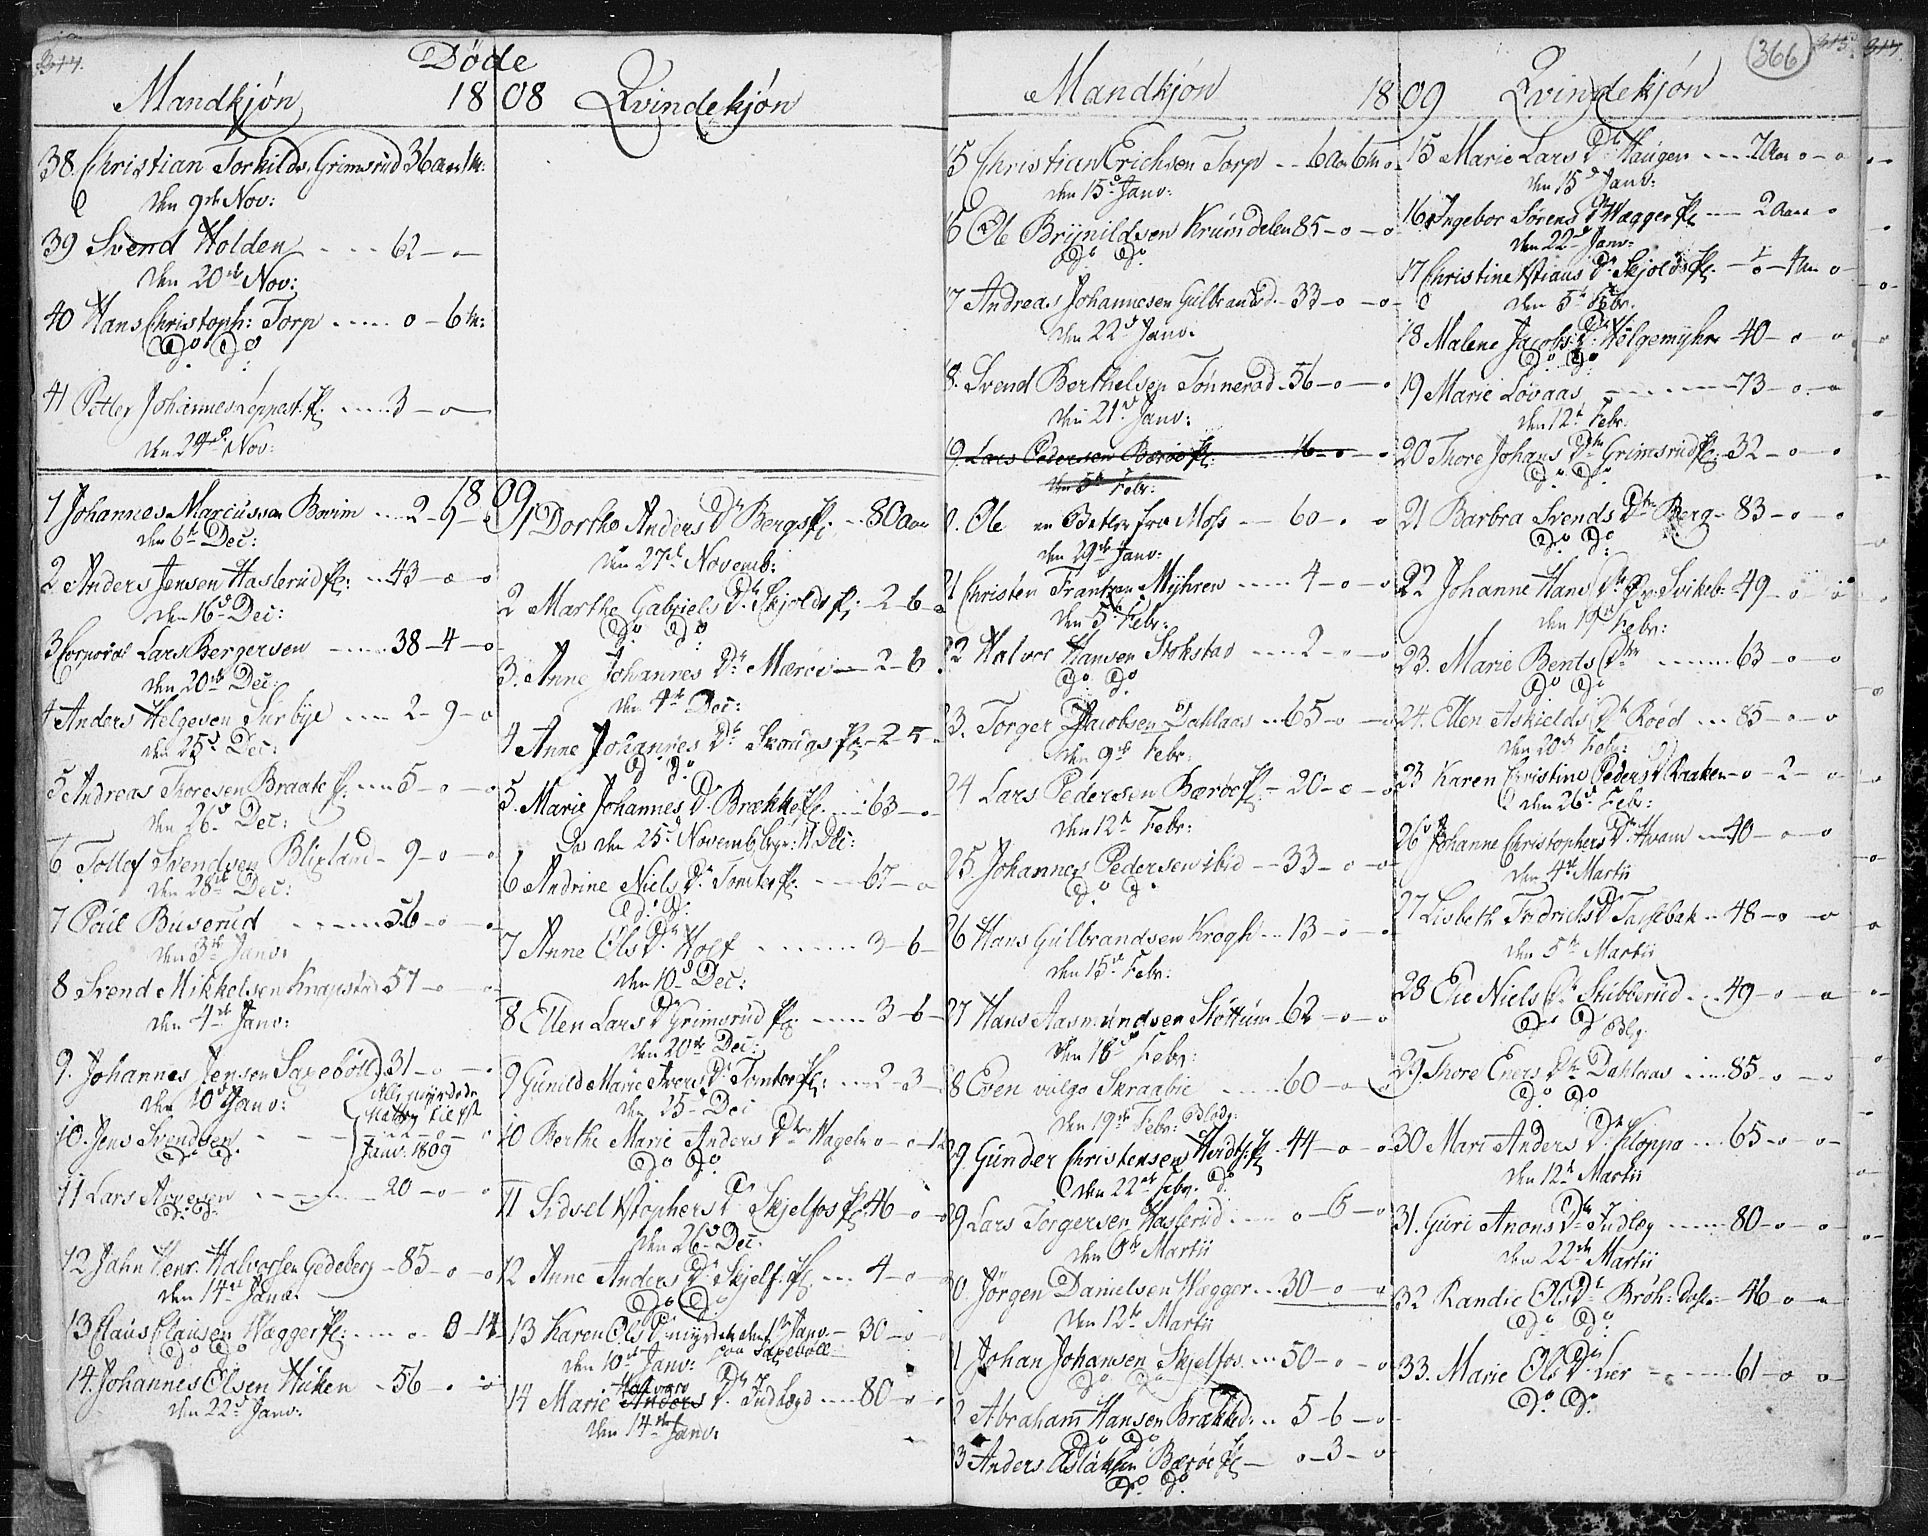 Døde
Mandkjøn 1808 Qvindekjøn
38. Christian Torkilds. Grimsrud 36 aar 1 M:
den 9de Nov:
39 Svend Holden - - - 62 - o -
den 20de Nov:
40 Hans Christoph: Torp - - - - o - 6 M:
Do Do
41 Petter Johannes Loppest. Pl. - - - - 3 - o -
den 24de Nov:
1809
1 Johannes Marcussen Bovim - - - 2 - 9 - o
den 6te Dec:
2 Anders Jensen Haslerud Pl: - - - 43 - o - o
den 16de Dec:
3 Corporal Lars Bergersen - - - - 38 - 4 - o
den 20de Dec:
4 Anders Helgesen Surbye - - - 2 - 9 - o
den 25de Dec:
5 Andreas Thoresen Braate Pl. - - - 5 - o - o
den 26de Dec:
6 Tollef Svendsen Blixland - 9 - o - o
den 28de Dec:
7 Poul Buserud - - - - - 56 - o - o
den 3de Janv.
8 Svend Mikkelsen Knapstad 57 - o - o
den 4de Janv:
9. Johannes Jensen Saxebøll 31 - o - o
den 10de Janv:
Alle myrdede
Natten til 1ste
Janv. 1809
10. Jens Svendsen - - -
Do Do
11 Lars Arvesen - - - - - 20 - o - o
Do Do
12 Jahn Henr. Halvorsen Gedeberg - 85 - o - o
den 14de Janv.
13 Claus Clausen Hægger Pl: - - - o - 8 - 14
Do Do
14. Johannes Olsen Huken - 56 - o - o
den 22de Janv:
1 Dorthe Anders Dr Bergs Pl. - - - 80 Aar
den 27de Novemb:
2 Marthe Gabriels Dr Skjolds Pl: - 2 - 6 - o
Do Do
3. Anne Johannes Dr - 2 - 6
den 4de Dec:
4 Anne Johannes Dr Skougs Pl - 2 - 5 -
Do Do
5. Marie Johannes Dr Brække Pl - - 63 - o
den 25de Novemb. 11 Dec:
6 Andrine Niels Dr Tomter Pl. - - - 67 - o
Do Do
7 Anne Ols Dr Holt - - - - - 3 - 6 -
den 10de Dec:
8 Ellen Lars Dr Grimsrud Pl: - - - - 3 - 6 -
den 20de Dec:
9 Gunild Marie Ivers Dr Tomter Pl: - - - 2 - 3 -
den 25de Dec
10 Berthe Marie Anders Dtr Hagel o - o - 12
Do Do
11 Sidsel Xstophers Dr Skjelfos Pl. 46 - o - o
den 26de Dec.
12 Anne Anders Dr Skjelf. Pl - - - 4 - o
Do Do
13 Karen Ols Dr myrdet den 1ste Janv. - 30 - o
den 10de Janv: paa Saxebøll
14 Marie Anders Halvors Dr Indlægd - - - 80 - o
den 14de Janv:
366
Mandkjøn 1809 Qvindekjøn
15 Christian Erichsen Torp - - 6 Aar 6 M o -
den 15de Janv:
6 Ole Brynildsen Krumdelen 85 - o - o
Do Do
7 Andreas Johannesen Gulbransrd. - 33 - o - o
den 22de Janv.
8. Svend Berthelsen Tønnerød - 56 - o - o
den 21de Janv:
9. Lars Pedersen Bærøe Pl. - - 16 - o - o
den 5te Febr:
Ole en Betler fra Moss - - 60 - o - o
den 29de Janv:
21 Christen Frantzen Myhren - - - - 4 - o - o
den 5te Febr:
22 Halvor Hansen Stokstad - - - 2 - o - o
Do Do
23. Torger Jacobsen Dahlaas - - 65 - o - o
den 9de Febr.
24 Lars Pedersen Bærøe Pl. - 20 - o - o
den 12te Febr:
25 Johannes Pedersen ibid - - 33 - o - o
Do Do
26 Hans Gulbrandsen Krogh - - 13 - o - o
den 15de Febr:
27 Hans Aasmundsen Støttum - 62 - o - o
den 16de Febr:
28 Even vulgo Skraabie - - 60 - o - o
den 19de Febr:
29 Gunder Christensen Hvidts. Pl - 44 - o - o
den 22de Febr. Do
29 Lars Torgersen Haslerud - - - o - 6 - o
den 8de Martii
30. Jørgen Danielsen Hægger - - 30 - o - o
den 12te Martii
1 Johan Johansen Skjelfos - - 50 - o - o
Do Do
2 Abraham Hansen Brække: - - 5 - 6 - o
Do Do
3 Anders Aslaksen Bærøe Pl - o - 3 - o
Do Do
15 Marie Lars Dr Haugen - - - - 7 Aar o - o
den 15de Janv:
16 Ingebor Sørens Dr Hægger Pl - - 2 Aar o
den 22de Janv:
17 Christine Xstians Dr Skjolds Pl. - o - 4 M o -
den 5te Febr.
18 Malene Jacobs Dr Holgemyhr 40 - o - o
Do Do
19 Marie Lovaas - - - - - 73 - o - o
den 12te Febr.
20 Thore Johans Dtr Grimsrud Pl. 32 - o - o
Do Do
21 Barbra Svends Dtr Berg - 83 - o - o
Do Do
22 Johanne Hans Dr Svikeb: 49 - o - o
den 19de Febr:
23. Marie Bents Dtr - - - - - 63 - o - o
Do Do
24. Ellen Askields Dr Roed - - - 85 - o - o
den 20de Febr:
25 Karen Christine Peders Dr Raaken - o - 2 - o
den 26de Febr:
26 Johanne Christophers Dr Hvam - - 40 - o - o
den 4de Martii
27 Lisbeth Fridrichs Dr Taslebak - - 48 - o - o
den 5te Martii
28 Elie Niels Dr Stubberud - - - 49 - o - o
Do Do
29. Thore Eners Dtr Dahlaas - - - 85 - o - o
Do Do
30 Mari Anders Dr Kloppa - - - 65 - o - o -
den 12te Martii
31. Guri Anons Dr Indleg - - - - 80 - o - o -
den 22de Martii
32 Randie Ols Dr - 46 - o - o
Do Do
33. Marie Ols Dr Lier - - - - - 61 - o - o -
Do Do